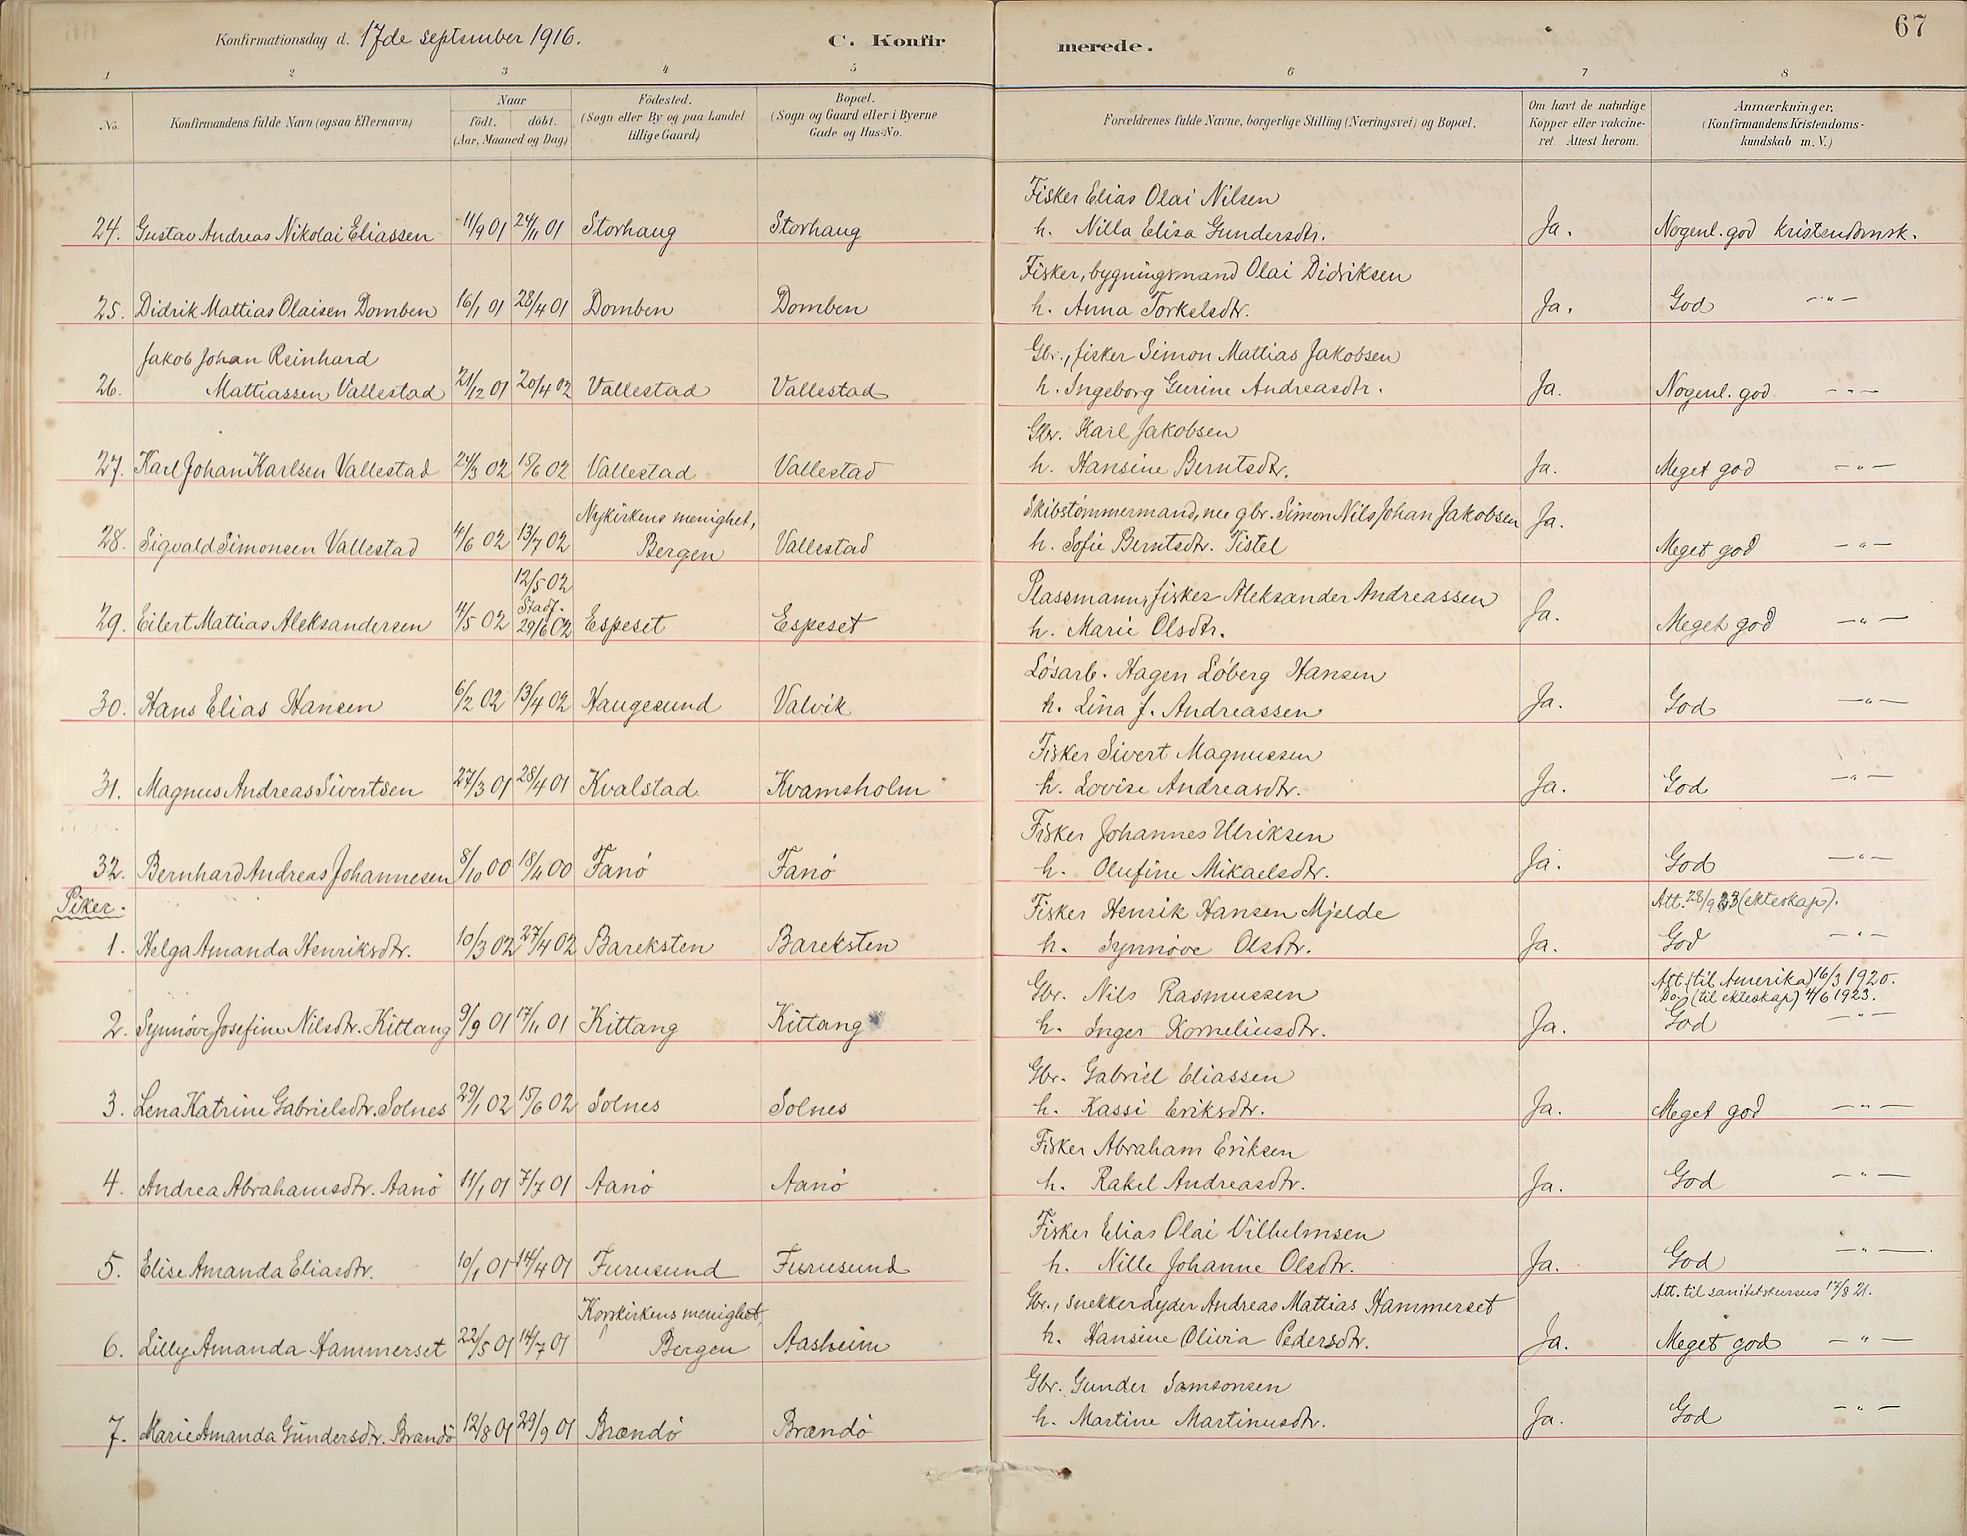 Konfirmationsdag d. 17de september 1916.
C. Konfirmerede.
67
1 2 3 4 5 6 7 8
No.
Konfirmandens fulde Navn (ogsaa Efternavn)
Naar
födt. döbt.
(Aar, Maaned og Dag)
Födested.
(Sogn eller By og paa Landet
tillige Gaard)
Bopæl.
(Sogn og Gaard eller i Byerne
Gade og Hus-No.
Forældrenes fulde Navne, borgerlige Stilling (Næringsvei) og Bopæl.
Om havt de naturlige
Kopper eller vakcine-
ret. Attest herom.
Anmærkninger,
(Konfirmandens Kristendoms-
kundskab m. V.)
Fisker Elias Olai Nilsen
24. Gustav Andreas Nikolai Eliassen 11/9 01 24/11 01 Storhaug Storhaug h. Nilla Elisa Gundersdtr. Ja. Nogenl. god kristendomsk.
Fisker, bygningsmand Olai Didriksen
25. Didrik Mattias Olaisen Domben 16/1 01 28/4 01 Domben Domben h. Anna Torkelsdtr. Ja. God —"—
Jakob Johan Reinhard Gbr., fisker Simon Mattias Jakobsen
26. Mattiassen Vallestad 21/12 01 20/4 02 Vallestad Vallestad h. Ingeborg Gurine Andreasdtr. Ja. Nogenl. god —"—
Gbr. Karl Jakobsen
27. Karl Johan Karlsen Vallestad 24/3 02 15/6 02 Vallestad Vallestad h. Hansine Berntsdtr. Ja. Meget god —"—
Nykirkens menighet, Skibstømmermand, nu gbr. Simon Nils Johan Jakobsen Ja.
28. Sigvald Simonsen Vallestad 4/6 02 13/7 02 Bergen Vallestad h. Sofie Berntsdtr. Tistel Meget god —"—
12/5 02 Plassmann, fisker Aleksander Andreassen
Stadf.
29. Eilert Mattias Aleksandersen 4/5 02 29/6 02 Espeset Espeset h. Marie Olsdtr. Ja. Meget god —"—
Løsarb. Hagen Løberg Hansen
30. Hans Elias Hansen 6/2 02 13/4 02 Haugesund Valvik h. Lina J. Andreassen Ja. God —"—
Fisker Sivert Magnussen
31. Magnus Andreas Sivertsen 27/3 01 28/4 01 Kvalstad Kvamsholm h. Lovise Andreasdtr. Ja. God —"—
Fisker Johannes Ulriksen
32. Bernhard Andreas Johannesen 8/10 00 18/4 00 Fanø Fanø h. Olufine Mikaelsdtr. Ja. God —"—
Piker.
Fisker Henrik Hansen Mjelde Att. 28/9 23 (ekteskap).
1. Helga Amanda Henriksdtr. 10/3 02 27/4 02 Bareksten Bareksten h. Synnøve Olsdtr. Ja. God —"—
Gbr. Nils Rasmussen Att. (til Amerika) 16/3 1920.
Do. (til ekteskap) 4/6 1923.
2. Synnøve Josefine Nilsdtr. Kittang 9/9 01 17/11 01 Kittang Kittang h. Inger Korneliusdtr. Ja. God —"—
Gbr. Gabriel Eliassen
3. Lena Katrine Gabrielsdtr. Solnes 29/1 02 15/6 02 Solnes Solnes h. Kassi Eriksdtr. Ja. Meget god —"—
Fisker Abraham Eriksen
4. Andrea Abrahamsdtr. Aanø 11/1 01 7/7 01 Aanø Aanø h. Rakel Andreasdtr. Ja. God —"—
Fisker Elias Olai Vilhelmsen
5. Elise Amanda Eliasdtr. 10/1 01 14/4 01 Furusund Furusund h. Nille Johanne Olsdtr. Ja. God —"—
Korskirkens menighet, Gbr., snekker Lyder Andreas Mattias Hammerset Att. til sanitetskursus 17/8 21.
6. Lilly Amanda Hammerset 22/5 01 14/7 01 Bergen Aasheim h. Hansine Olivia Pedersdtr. Ja. Meget god —"—
Gbr. Gunder Samsonsen
7. Marie Amanda Gundersdtr. Brandø 12/8 01 29/9 01 Brandø Brandø h. Martine Martinusdtr. Ja. God —"—